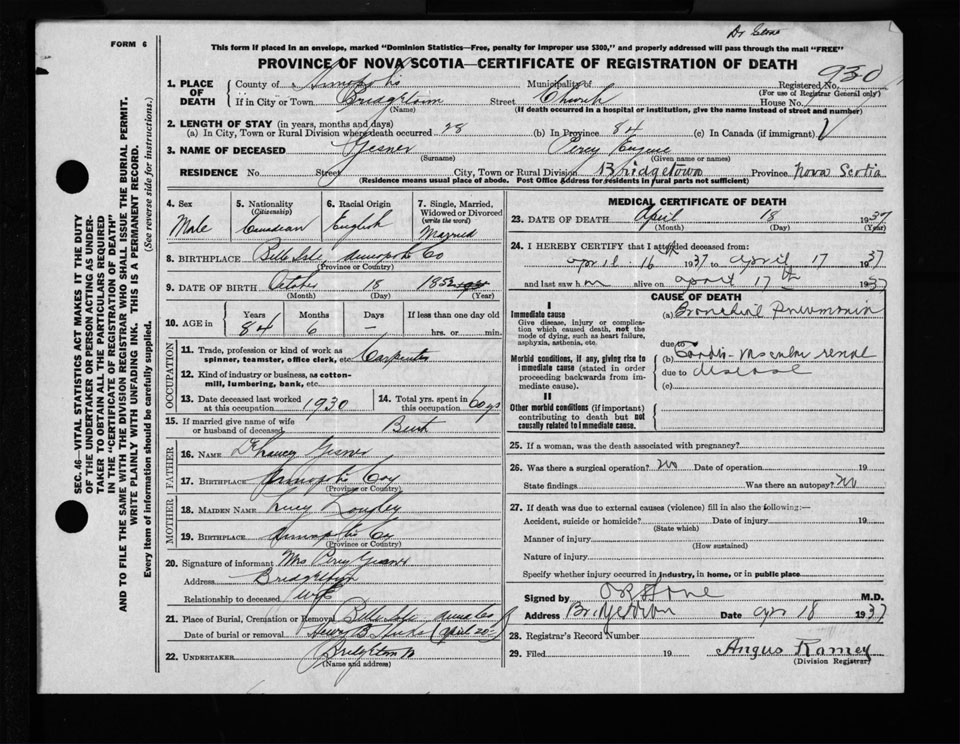 Dr Stone
FORM 6
This form if placed in an envelope, marked "Dominion Statistics—Free, penalty for improper use $300," and properly addressed will pass through the mail "FREE"
PROVINCE OF NOVA SCOTIA—CERTIFICATE OF REGISTRATION OF DEATH
1. PLACE OF DEATH
County of Annapolis Municipality of Registered No. 930
(For use of Registrar General only)
If in City or Town Bridgetown Street Church House No.
(Name) (If death occurred in a hospital or institution, give the name instead of street and number)
2. LENGTH OF STAY (in years, months and days)
(a) In City, Town or Rural Division where death occurred 28 (b) In Province 84 (c) In Canada (if immigrant)
3. NAME OF DECEASED Gesner Percy Eugene
(Surname) (Given name or names)
RESIDENCE No. Street City, Town or Rural Division Bridgetown Province Nova Scotia
(Residence means usual place of abode. Post Office Address for residents in rural parts not sufficient)
4. Sex Male
5. Nationality (Citizenship) Canadian
6. Racial Origin English
7. Single, Married, Widowed or Divorced (write the word) Married
8. BIRTHPLACE Belle Isle Annapolis Co
(Province or Country)
9. DATE OF BIRTH October 18 1852
(Month) (Day) (Year)
10. AGE in Years Months Days If less than one day old
84 6 — hrs. or min.
OCCUPATION
11. Trade, profession or kind of work as spinner, teamster, office clerk, etc. Carpenter
12. Kind of industry or business, as cotton-mill, lumbering, bank, etc.
13. Date deceased last worked at this occupation 1930
14. Total yrs. spent in this occupation 60 ys
15. If married give name of wife or husband of deceased
FATHER
16. NAME Gesner
17. BIRTHPLACE Annapolis Coy
(Province or Country)
MOTHER
18. MAIDEN NAME Lucy Longley
19. BIRTHPLACE Annapolis Cy
(Province or Country)
20. Signature of informant Mrs Percy Gesner
Address Bridgetown
Relationship to deceased wife
21. Place of Burial, Cremation or Removal Belle Isle Anna Co
Date of burial or removal (April 20
22. UNDERTAKER Bridgetown
(Name and address)
MEDICAL CERTIFICATE OF DEATH
23. DATE OF DEATH April 18 1937
(Month) (Day) (Year)
24. I HEREBY CERTIFY that I attended deceased from:
April 16th 1937 to April 17 1937
and last saw him alive on April 17th 1937
CAUSE OF DEATH
I
Immediate cause
Give disease, injury or complication which caused death, not the mode of dying, such as heart failure, asphyxia, asthenia, etc.
(a) Bronchial Pneumonia
due to
Morbid conditions, if any, giving rise to immediate cause (stated in order proceeding backwards from immediate cause).
(b) Cardio-vascular renal
due to disease
(c)
II
Other morbid conditions (if important) contributing to death but not causally related to immediate cause.
25. If a woman, was the death associated with pregnancy?
26. Was there a surgical operation? No Date of operation 19
State findings Was there an autopsy? No
27. If death was due to external causes (violence) fill in also the following:—
Accident, suicide or homicide? Date of injury 19
(State which)
Manner of injury
(How sustained)
Nature of injury
Specify whether injury occurred in industry, in home, or in public place
Signed by Stone M.D.
Address Bridgetown Date Apr 18 1937
28. Registrar's Record Number
29. Filed 19 Angus Ramey
(Division Registrar)
SEC. 46—VITAL STATISTICS ACT MAKES IT THE DUTY
OF THE UNDERTAKER OR PERSON ACTING AS UNDER-
TAKER TO OBTAIN ALL THE PARTICULARS REQUIRED
IN THE "CERTIFICATE OF REGISTRATION OF DEATH"
AND TO FILE THE SAME WITH THE DIVISION REGISTRAR WHO SHALL ISSUE THE BURIAL PERMIT.
WRITE PLAINLY WITH UNFADING INK. THIS IS A PERMANENT RECORD.
Every item of information should be carefully supplied. (See reverse side for instructions.)